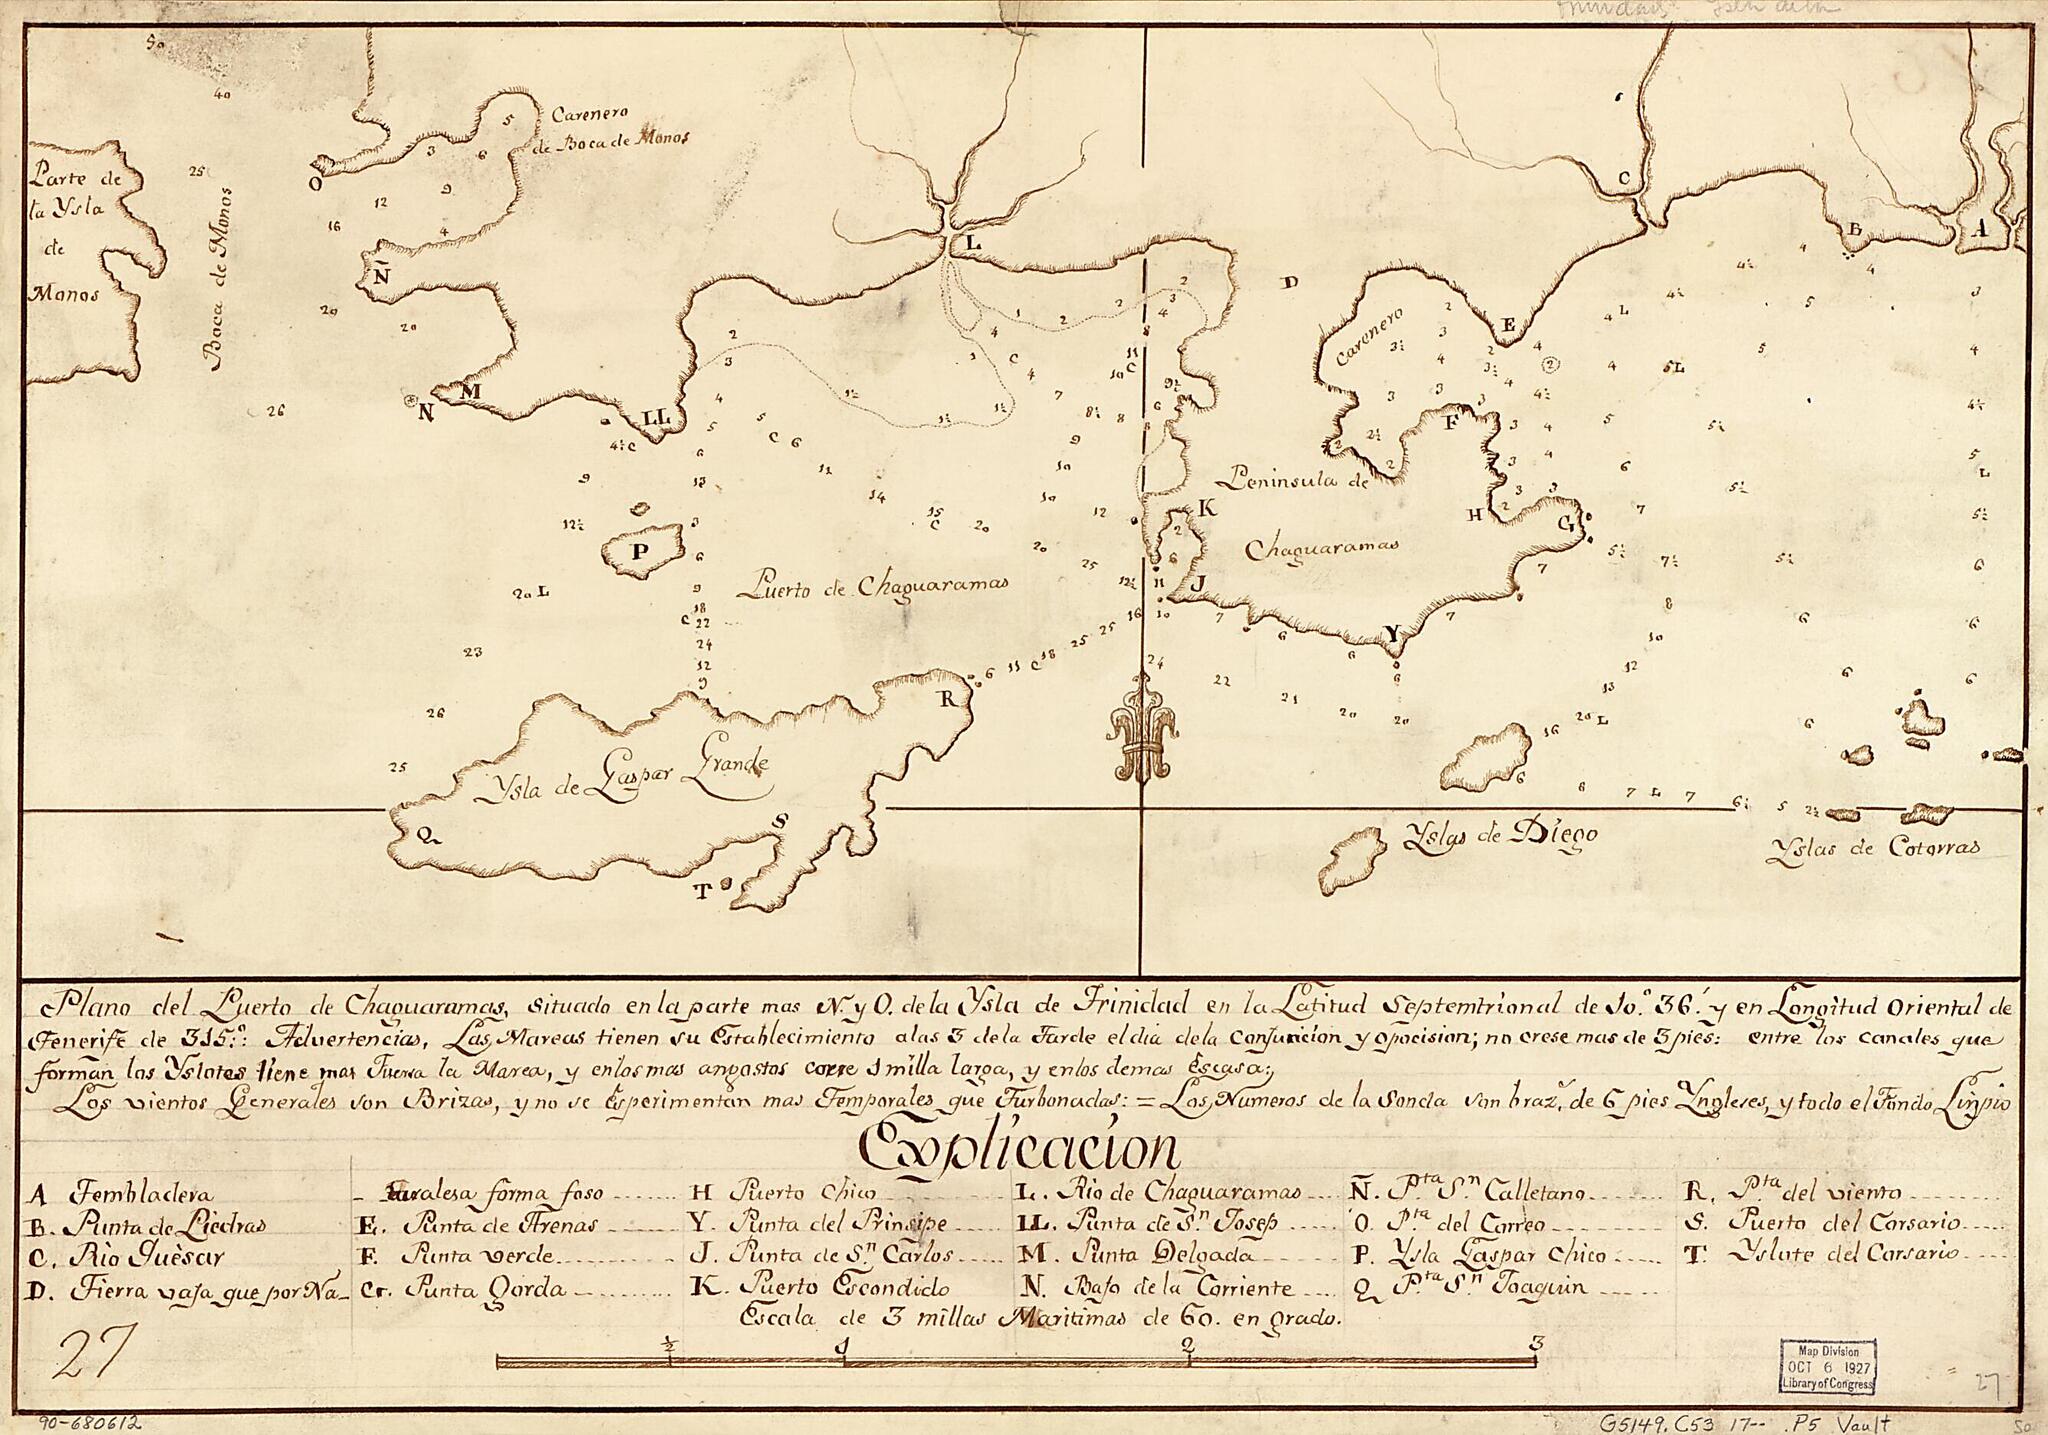 Carenero
de Boca de Monos
Parte de
la Ysla
de
Monos
Boca de Monos
Carenero
Peninsula de
Chaguaramas
Puerto de Chaguaramas
Ysla de Gaspar Grande
Yslas de Diego
Yslas de Cotorras
Plano del Puerto de Chaguaramas, situado en la parte mas N. y O. de la Ysla de Trinidad en la Latitud Septemtrional de 10°. 36'. y en Longitud Oriental de
Tenerife de 315°: Advertencias, Las Mareas tienen su Establecimiento a las 3 de la Tarde el dia de la Conjuncion y opocision; no crese mas de 3 pies: entre los canales que
forman los Yslotes tiene mas Fuersa la Marea, y en los mas angostos corre 1 milla larga, y en los demas Escasa:,
Los vientos Generales son Brizas, y no se Esperimentan mas Temporales que Turbonadas: = Los Numeros de la Sonda son braz.ˢ de 6 pies Yngleses, y todo el Fondo Linpio
Explicacion
A Tembladera
B. Punta de Piedras
C. Rio Guèsar
D. Tierra vaja que por Na-
-turalesa forma foso
E. Punta de Arenas
F. Punta verde
G. Punta Gorda
H Puerto Chico
Y. Punta del Prinsipe
J. Punta de Sⁿ Carlos
K. Puerto Escondido
L. Rio de Chaguaramas
LL. Punta de Sⁿ Josep
M. Punta Delgada
N. Bajo de la Corriente
Ñ. Pᵗᵃ Sⁿ Calletano
O. Pᵗᵃ del Correo
P. Ysla Gaspar Chico
Q Pᵗᵃ Sⁿ Joaquin
R. Pᵗᵃ del viento
S. Puerto del Corsario
T. Yslote del Corsario
Escala de 3 millas Maritimas de 60. en grado.
½ 1 2 3
27
Map Division
OCT 6 1927
Library of Congress
27
90-680612
G5149.C53 17-- .P5 Vault